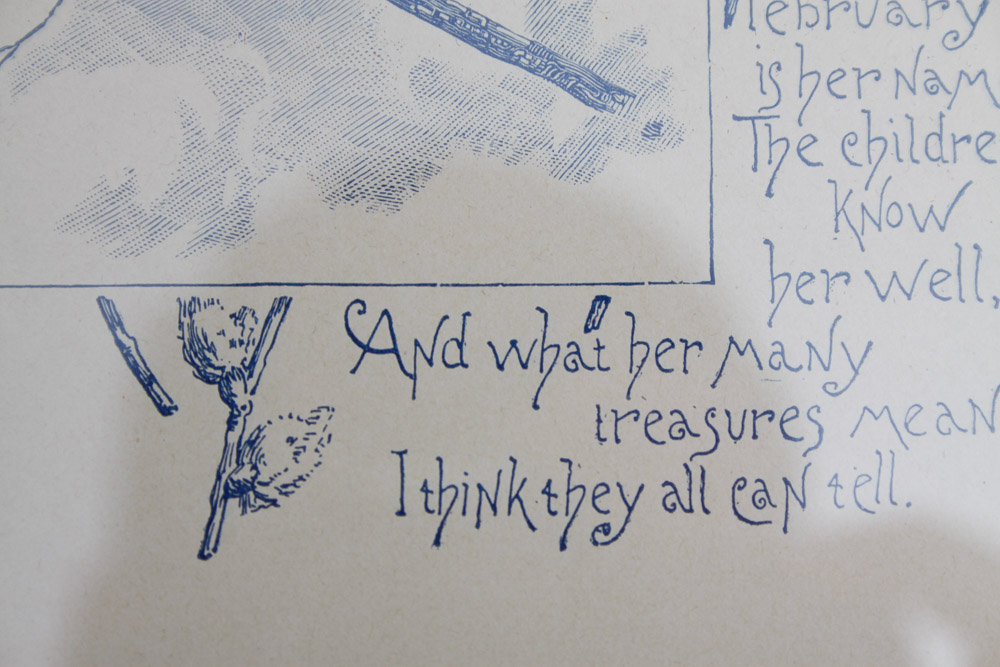 February
is her Nam
The childre
Know
her well,
And what her many
treasures mean
I think they all can tell.